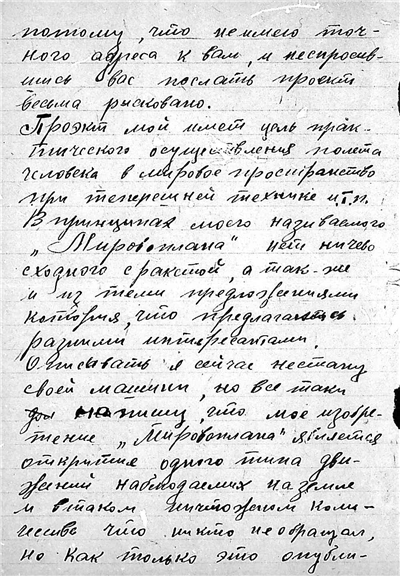 потому, что неимею точ-
ного адреса к вам, и неспросив-
шись вас послать проект
весьма рисковано.
Проэкт мой имет цель прак-
тического осуществления полета
человека в мировое пространство
при теперешней технике и т.п.
В принципах моего называемого
„Мировоплана" нет ничево
сходного с ракетой, а так-же
и из теми предложениями
которыя, что предлагались
разними интересантами.
Описывать я сейчас нестану
своей машини, но все таки
напишу, что мое изобре-
тение „Мировоплана" является
открытия одного типа дви-
жений наблюдаемих на земле
и в таком ничтожном коли-
чесве что никто не обращал,
но как только это опубли-